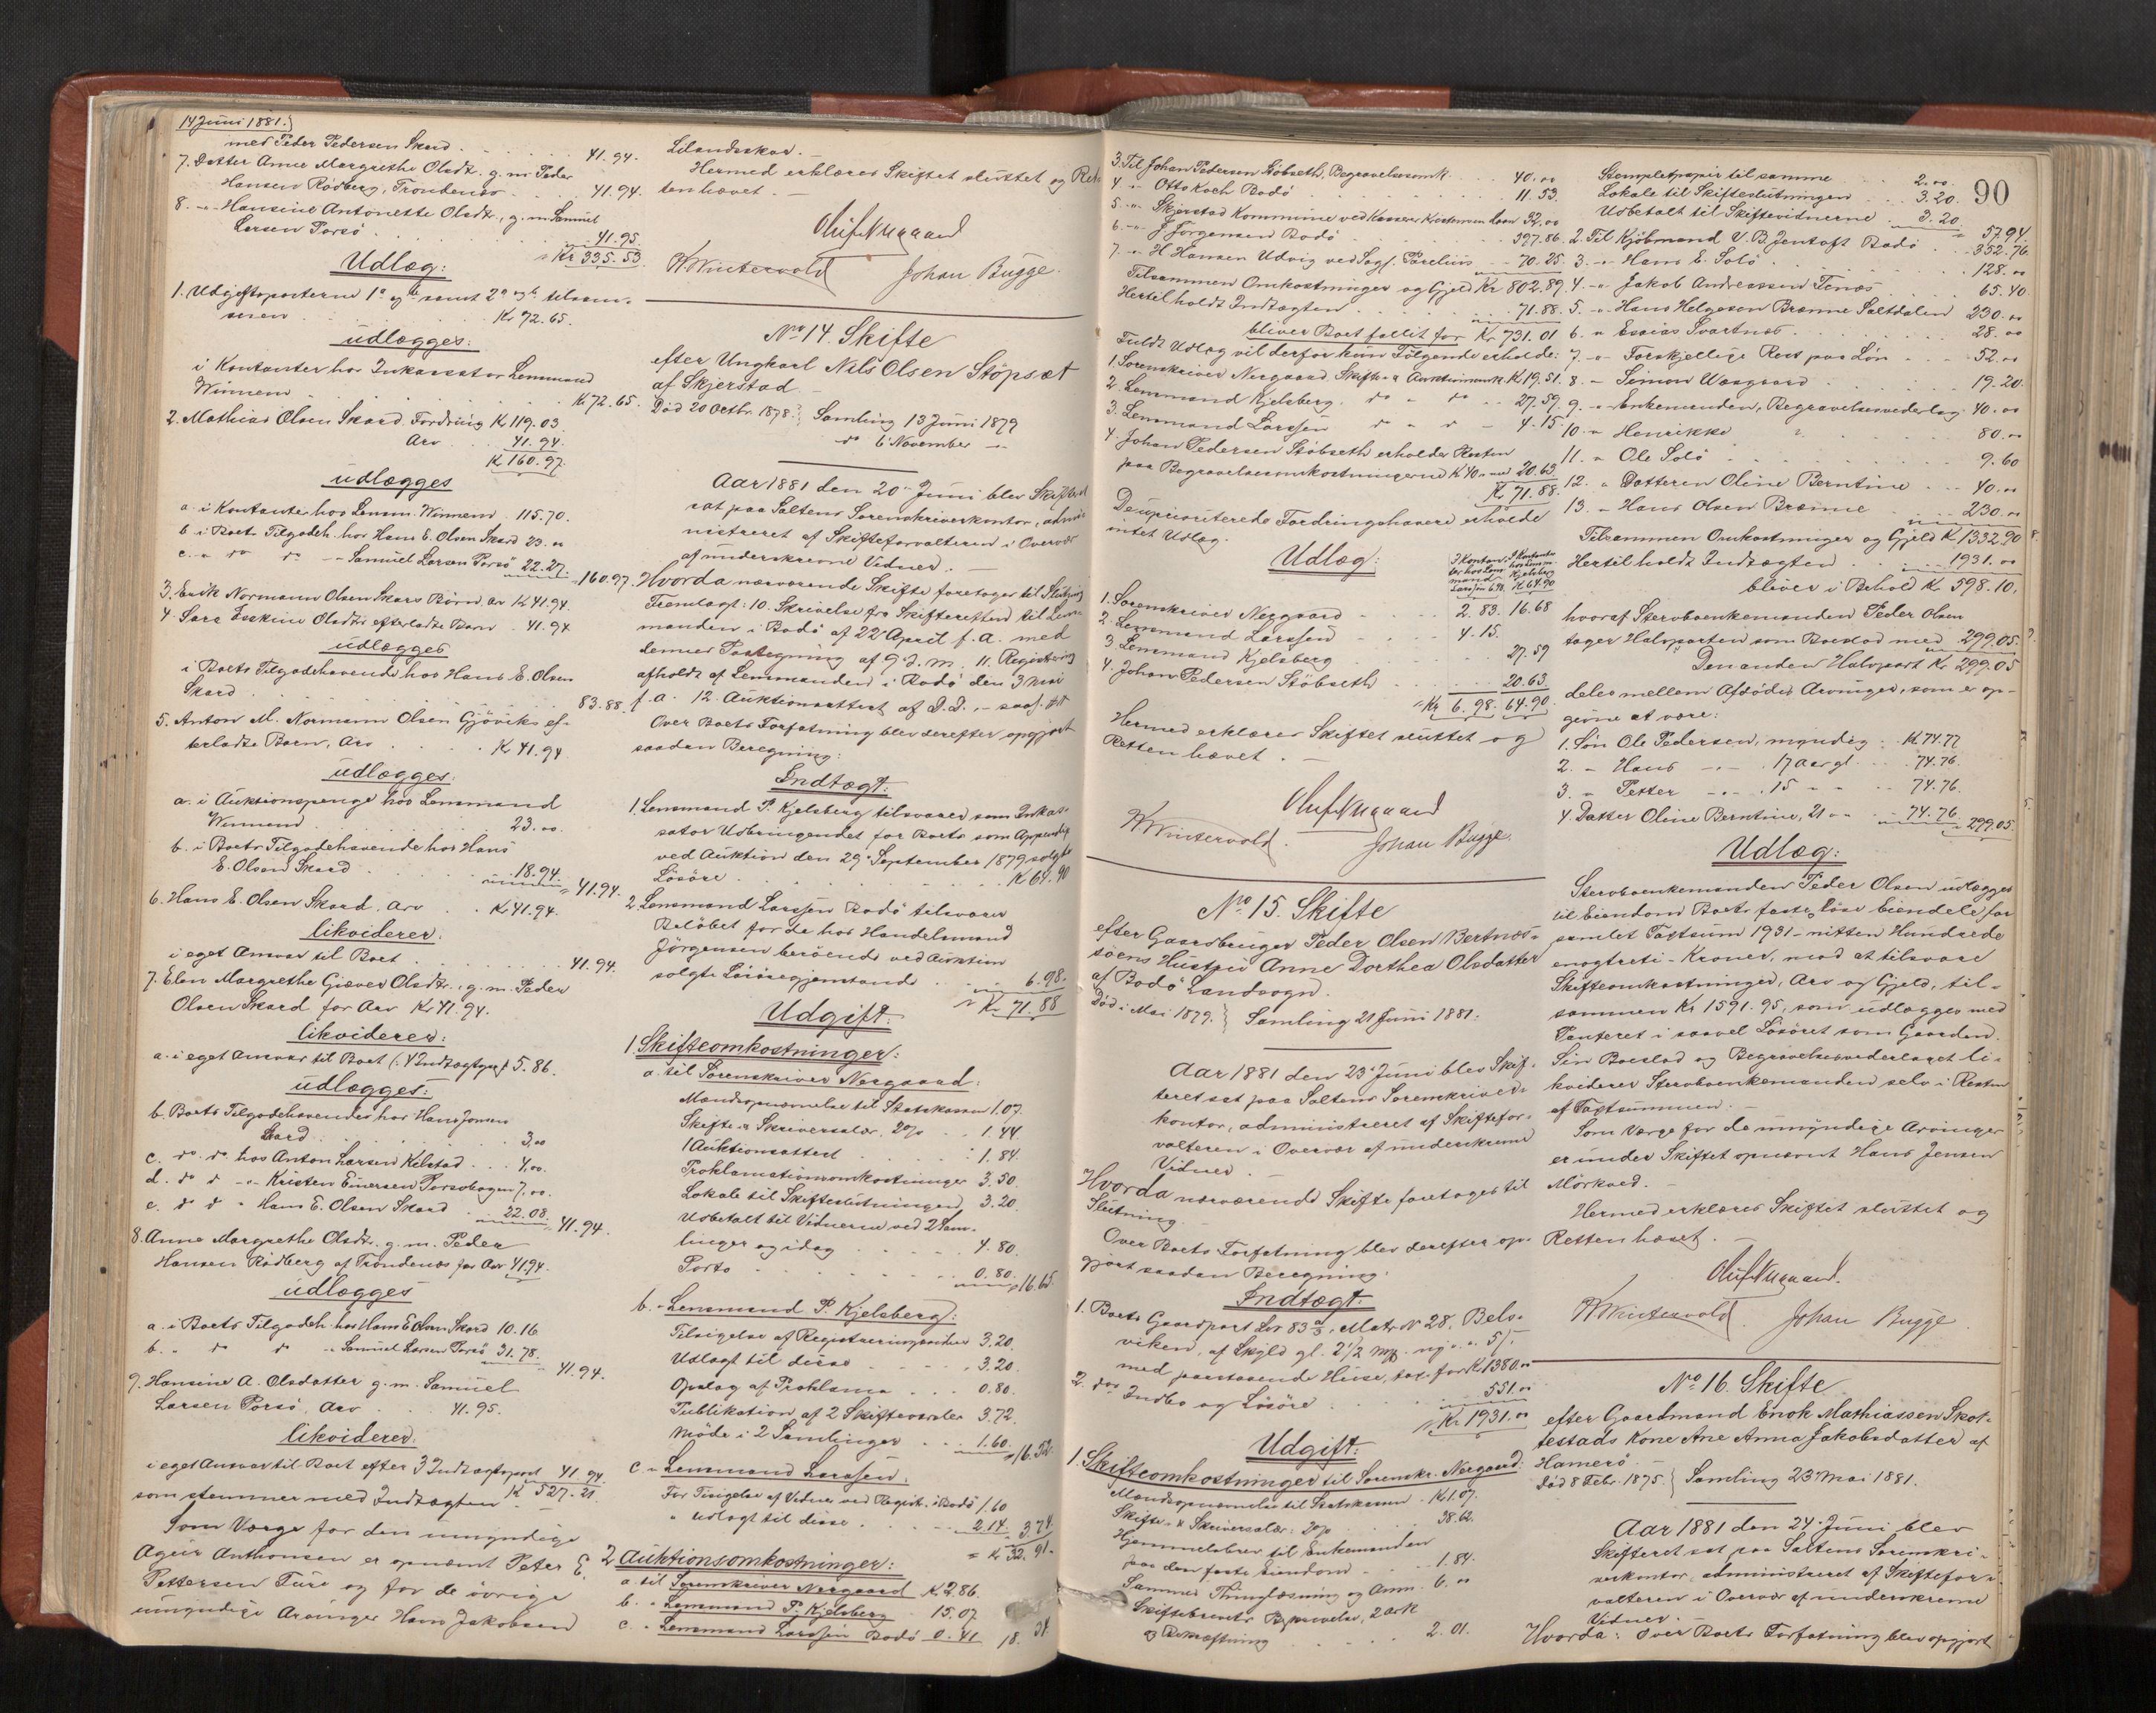 14 Juni 1881.
med Peder Pedersen Skard . . . 41.94.
7. Datter Anne Margrethe Olsdtr. g. m. Peder
Hansen Rødberg, Trondenæs . . 41.94.
8. -"- Hansine Antonette Olsdtr., g. m. Samuel
Larsen Porsö . . . 41.95.
Kr 335.53.
Udlæg:
1. Udgiftsposterne 1a og b samt 2a og b tilsam-
men . . . Kr 72.65.
udlægges:
i Kontanter hos Inkassator Lensmand
Winnem . . . Kr 72.65.
2. Mathias Olsen Skard. Fordring K 119.03.
Arv . . 41.94.
K 160.97.
udlægges
a. i Kontanter hos Lensm. Winnem . 115.70.
b. i Boets Tilgodeh. hos Hans E. Olsen Skard 23.00
c. " do do -"- Samuel Larsen Porsö 22.27.
160.97.
3. Erik Normann Olsen Skars Børn, Arv K 41.94.
4. Sara Olsdtrs efterladte Barn . 41.94
udlægges
i Boets Tilgodehavende hos Hans E. Olsen
Skard . . . 83.88.
5. Anton M. Normann Olsen Gjöviks ef-
terladte Barn, Arv . . . K 41.94.
udlægges:
a. i Auktionspenge hos Lensmand
Winnem . . . 23.00.
b. i Boets Tilgodehavende hos Hans
E. Olsen Skard . . . 18.94.
41.94.
6. Hans E. Olsen Skard. Arv . . K 41.94.
likviderer:
i eget Ansvar til Boet . . . 41.94.
7. Elen Margrethe Giæver Olsdtr., g. m. Peder
Olsen Skard for Arv Kr 41.94.
likviderer:
a. i eget Ansvar til Boet (: 4 Indtægtspost) 5.86.
udlægges:
b. Boets Tilgodehavender hos Hans Jonsen
Skard . . . 3,00
c. do. do. hos Anton Larsen Kilstad . . . 4,00.
d. do d -"- Kristen Einersen Porsobogen 7,00.
e. d d " Hans E. Olsen Skard . 22.08
41.94.
8. Anne Margrethe Olsdtr. g. m. Peder
Hansen Rödberg af Trondenæs for Arv 41.94.
udlægges
a. i Boets Tilgodeh. hos Hans E Olsen Skard 10.16
b. " d d -"- Samuel Larsen Porsö 31.78.
41.94.
9. Hansine A. Olsdatter g. m. Samuel
Larsen Porsö, Arv . . 41.95.
likviderer:
i eget Ansvar til Boet efter 3 Indtægtspost 41.94
som stemmer med Indtægten . K 527.21.
Som Værge for den umyndige
Ageir Anthonsen er opnævnt Peter E.
Pettersen Ture og for de övrige
umyndige Arvinger Hans Jakobsen
Lilandsskar. —
Hermed erklæres Skiftet sluttet og Ret-
ten hævet. —
Oluf Nergaard
K Wintervold Johan Bugge.
No 14. Skifte
efter Ungkarl Nils Olsen Stöpset
af Skjerstad
Död 20 Octbr. 1878. } Samling 13 Juni 1879
do 6 November -"-
Aar 1881 den 20de Juni blev Skifteret
sat paa Saltens Sorenskriverkontor, admi-
nistreret af Skifteforvalteren i Overvær
af underskrevne Vidner. —
Hvorda nærværende Skifte foretages til Slutning
Fremlagt: 10. Skrivelse fra Skifteretten til Lens-
manden i Bodö af 22 April f. A. med
dennes Paategning af 9 d. m. 11. Registrering
afholdt af Lensmanden i Bodö den 3 Mai
f. A. 12. Auktionsattest af D. D., — saal. ###
Over Boets Forfatning blev derefter opgjort
saadan Beregning:
Indtægt:
1. Lensmand P. Kjelsberg tilsvarer som Inkas-
sator Udbringendet for Boets som Appendix
ved Auktion den 29 September 1879 solgte
Lösöre . . . K 64.90
2. Lensmand Larssen Bodö tilsvarer
Belöbet for de hos Handelsmand
Jörgensen beroende ved Auktion
solgte Lösöregjenstande . . 6.98.
Kr 71.88
Udgift:
1. Skifteomkostninger:
a. til Sorenskriver Nergaard:
Mændsopnævnelse til Statskassen 1.07.
Skifte- & Skriversalær, 2% . . 1.44.
1 Auktionsattest . . . 1.84.
Proklamationsomkostninger 3.50.
Lokale til Skifteslutningen 3.20.
Udbetalt til Vidnerne ved 2 Sam-
linger og idag . . . 4.80.
Porto . . . 0.80.
16.65.
b. " Lensmand P. Kjelsberg:
Tilsigelse af Registreringsmænd 3.20.
Udlagt til disse . . . 3.20.
Opslag af Proklama . . . 0.80.
Publikation af 2 Skiftevarsler 3.72.
Møde i 2 Samlinger . . 1.60.
16.52.
c. " Lensmand Larssen:
For Tisigelse af Vidner ved Registr. i Bodö 1.60
" udlagt til disse . . . 2.14.
3.74.
K 32.91.
2 Auktionsomkostninger:
a. til Sorenskriver Nergaard K 2.86.
b. " Lensmand P. Kjelsberg 15.07
c. " Lensmand Larssen Bodö 0.41 18.34.
90
3. Til Johan Pedersen Stöbseth, Begravelsesomk. . 40.00
4. -"- Otto Koch Bodö . . . 11.53.
5. -"- Skjerstad Kommune ved Kasserer Kristensen Laan 32.00
6. -"- J. Jörgensen Bodö . . . 397.86.
7. -"- H Hansen Udvig ved Sagf. Parelius . . 70.25.
Tilsammen Omkostninger og Gjeld Kr 802.89.
Hertil holdt Indtægten . . . 71.88.
bliver Boet fallit for Kr 731.01
Fuldt Udlæg vil derfor kun Følgende erholde:
1. Sorenskriver Nergaard Skifte- & Auktionsomk. K 19.51.
2. Lensmand Kjelsberg. do " do . . 27.59.
3. Lensmand Larssen do " d - 4.15.
4. Johan Pedersen Stöbseth erholder Resten
paa Begravelsesomkostningerne K 40.00 med 20.63
Kr 71.88.
De uprioriterede Fordringshavere erholde
intet Udlæg.
Udlæg:
I Kontan-
ter hos Lens-
mand
Larssen 6.98.
I Kontanter
hos Lensm.
Kjelsberg
K 64.90
1. Sorenskriver Nergaard . . . 2.83. 16.68
2. Lensmand Larssen . . . 4.15.
3. Lensmand Kjelsberg . . . 27.59
4. Johan Pedersen Stöbseth . . . 20.63.
Kr 6.98. 64.90.
Hermed erklæres Skiftet sluttet og
Retten hævet. —
Oluf Nergaard
K Wintervold. Johan Bugge.
No 15. Skifte
efter Gaardbruger Peder Olsen Bertnæs-
söens Hustru Anne Dorthea Olsdatter
af Bodö Landsogn.
Död i Mai 1879. } Samling 21 Juni 1881.
Aar 1881 den 23 Juni blev Skif-
teret sat paa Saltens Sorenskriver-
kontor, administreret af Skiftefor-
valteren i Overvær af underskrevne
Vidner. —
Hvorda nærværende Skifte foretages til
Slutning.
Over Boets Forfatning blev derefter op-
gjort saadan Beregning:
Indtægt:
1. Boets Gaardpart Lnr 83a, Matr No 28, Bels-
viken, af Skyld gl. 2 1/2 Mk. ny . . 5/-
med paastaaende Huse, tax. for K 1380.00
2. dets Indbo og Lösöre . . . 551.00
Kr 1931.00
Udgift:
1. Skifteomkostninger til Sorenskr. Nergaard:
Mændsopnævnelse til Statskassen . K 1.07.
Skifte- & Skriversalær: 2% . . . 38.62.
Hjemmelsbrev til Enkemanden
paa den faste Eiendom . . 1.84.
Sammes Thinglæsning og Anm. 6.00
Skiftebrevets Beskrivelse, 2 Ark
og Bekræftning . . . 2.01.
Stempletpapir til samme . . 2.00.
Lokale til Skifteslutningen . . 3.20.
Udbetalt til Skiftevidnerne 3.20
57.94.
2. Til Kjöbmand V. B. Jentoft Bodö . . 352.76.
3. -"- Hans E. Solö . . . 128.00
4. -"- Jakob Andreassen Tenæs . . 65.40.
5. -"- Hans Helgesen Brænne Saltdalen 230.00
6. " Esaias Svartnæs . . . 28.00
7. -"- Forskjellige Rest paa Løn . . . 52.00
8. - Simon Waagaard . . . 19.20.
9. -"- Enkemanden, Begravelsesvederlag 40.00
10. " Henrikke " . . . 80.00
11. " Ole Solö . . . 9.60
12. " Datteren Oline Berntine . . . 40.00
13. - Hans Olsen Brænne . . . 230.00
Tilsammen Omkostninger og Gjeld K 1332.90
Hertil holdt Indtægten . . . 1931.00
bliver i Behold Kr 598.10.
hvoraf Stervboenkemanden Peder Olsen
tager Halvparten som Boeslod med 299.05.
Den anden Halvpart Kr 299.05
deles mellem Afdödes Arvinger, som er op-
givne at være:
1. Sön Ole Pedersen, myndig . K 74.77
2. - Hans -"- . 17 Aar gl. . . 74.76.
3. - Petter -"- . 15 " " . . 74.76.
4. Datter Oline Berntine, 21 " " . 74.76.
299.05.
Udlæg:
Stervboenkemanden Peder Olsen udlægges
til Eiendom Boets faste & löse Eiendele for
samlet Taxtsum 1931 - nitten Hundrede
enogtreti - Kroner, mod at tilsvare
Skifteomkostninger, Arv og Gjeld, til-
sammen Kr 1591.95, som udlægges med
Panteret i saavel Lösöret som Gaarden.
Sin Boeslod og Begravelsesvederlaget li-
kviderer Stervboenkemanden selv i Resten
af Taxtsummen. —
Som Værge for de umyndige Arvinger
er under Skiftet opnævnt Hans Jensen
Mörkved. —
Hermed erklæres Skiftet sluttet og
Retten hævet. —
Oluf Nergaard.
K Wintervold. Johan Bugge.
No 16. Skifte
efter Gaardmand Enok Mathiassen Skot-
testads Kone Ane Anna Jakobsdatter af
Hamerö.
Död 8 Febr. 1875. } Samling 23 Mai 1881.
Aar 1881 den 24 Juni blev
Skifteret sat paa Saltens Sorenskri-
verkontor, administreret af Skiftefor-
valteren i Overvær af underskrevne
Vidner. —
Hvorda: Over Boets Forfatning blev opgjort